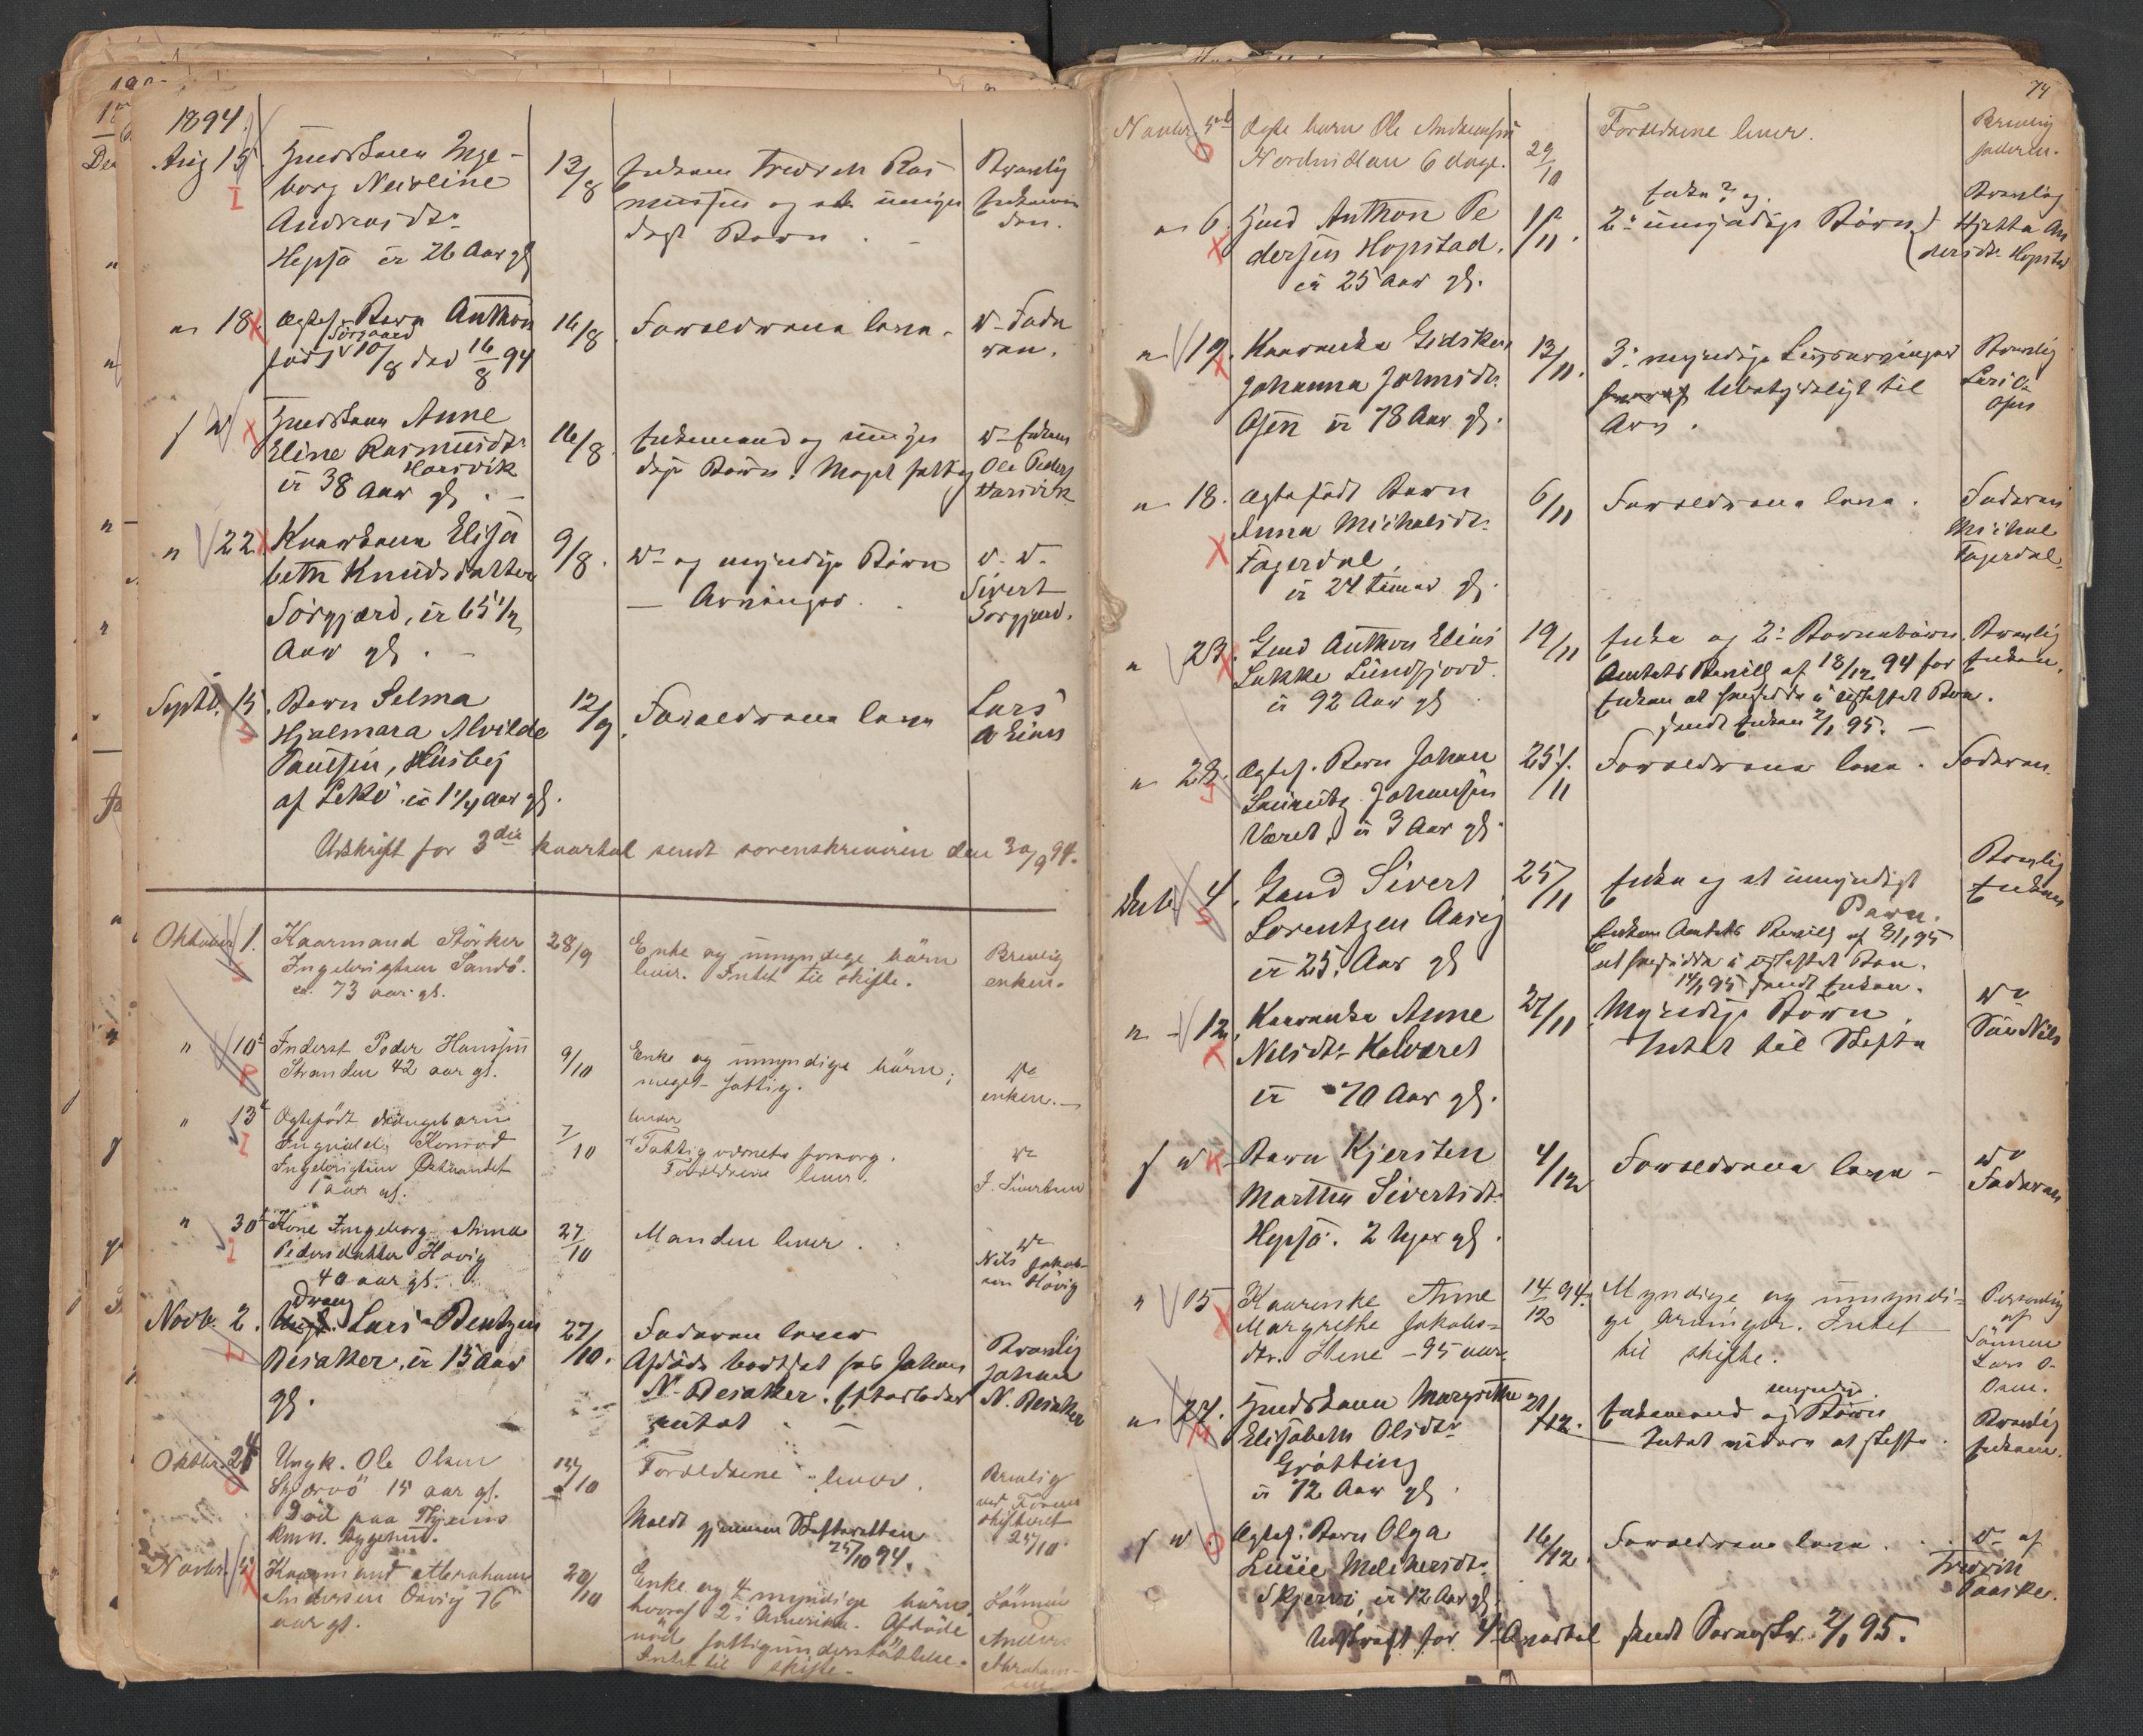 1894.
Aug 15 Huuskone Inge-
borg Neusline
Andreasdtr
Hepsö er 26 Aar gl
13/8
Enkem Fredrik Ras
mussen og umyn
dige Børn
Brevlig
Enkeman
den.
18. Ægtef. Barn Anthon
Sörgaard
født 10/8 død 16/8 94
16/8
Foreldrene lever.
Fade
ren.
Huuskone Anne
Eline Rasmusdtr
Harsvik
er 38 Aar gl.
16/8
Enkemand og umyn
dige Børn. Meget fattig
Enkem
Ole Peders
Harsvik
" 22. Kaarkone Elisa
beth Knudsdatter
Sørgjærd, er 65 1/2
Aar gl.
9/8.
og myndige Børn
— Arvinger.
Sivert
Sørgjerd.
Septb. 15. Barn Selma
Hjalmara Alvilde
Paulsen, Husby
af Lekö er 1 1/4 Aar gl.
12/9
Foreldrene lever
Lars
Udskrift for 3die kvartal sendt sorenskriveren den 30/9 94.
Oktober 1. Kaarmand Störker
Ingebrigtsen Sandö.
ca. 73 aar gl.
28/9
Enke og umyndige börn
lever. Intet til skifte.
Brevlig
enken.
" 10 Inderst Peder Hanssen
Stranden 42 aar gl.
9/10
Enke og umyndige börn;
meget fattig.
enken.—
" 13 Ægtefödt drengebarn
Konrad
Ingebrigtsen
1 aar gl.
7/10
lever
Fattigvæsnets forsorg.
Foreldrene lever.
J. Sivertsen
" 30 Kone Ingeborg Anna
Pedersdatter Hovig
40 aar gl.
27/10
Manden lever.
Nils Jakob-
sen Hövig
Novb. 2. Dreng
Lars Bentzen
Besaker, er 15 Aar
gl.
27/10.
Faderen lever
Afdøde bortsat hos Johan
N. Besaker. Efterlader
intet
Brevlig
Johan
N. Besaker
Oktbr. 24 Ungk. Ole Olsen
Skjærvö 15 aar gl.
Död paa
10
Foreldrene lever.
Meldt gjennem Skifteretten
25/10 94.
Brevlig
skifteret
25/10
Novbr. Kaarmand Abraham
Andersen Osvig 76
aar gl.
20/10
Enke og 4 myndige börn,
hvoraf 2 i Amerika. Afdöde
nöd fattigunderstöttelse.
Intet til skifte.
Sönnen
Anders
Abraham-
sen
74
Novbr. 5 Ægte barn Ole Andreassen
Nordmelan 6 dage.
29/10
Foreldrene lever.
Brevlig
faderen.
" 6. Gmd Anthon Pe
dersen Hopstad.
er 25 Aar gl.
1/11.
Enke og
2 umyndige Børn
Brevlig
An
dersdtr. Hopstad
" 19. Kaarenke Gidsken
Johanna Johnsdtr.
Osen er 78 Aar gl.
13/11.
3 myndige Livsarvinger
Ubetydeligt til
Arv.
Brevlig
Lars O.
Osen
" 18. Ægtefødt Barn
Anna Mikalsdtr
Fagerdal
er 24 timer gl.
6/11
Foreldrene lever.
Faderen
Mikal
Fagerdal.
" 23. Gmd Anthon Elias
Lakke Sundfjord.
er 92 Aar gl
19/11
Enke og 2 Barnebørn.
Amtets Bevillg af 18/12 94 for
Enken at hensidde i uskiftet Bo.
sendt Enken 2/1 95.
Brevlig
Enken.
" 28. Ægtef. Barn Johan
Lauritz Johansen
Været, er 3 Aar gl.
25/11
Foreldrene lever.
Faderen
Decb. 4. Gmd Sivert
Lorentzen Aasej
er 25 Aar gl
25/11
Enke og et umyndigt
Barn.
Enken Amtets Bevillg af 3/1 95
at hensidde i uskiftet Bo.
14/1 95 sendt Enken.
Brevlig
Enken
" 12. Kaarenke Anne
Nilsdtr Kalværet
er 70 Aar gl.
27/11
Myndige Børn.
Intet til Skifte
Søn Nils
Barn Kjersten
Martha Sivertsdtr.
Hepsö. 2 Uger gl.
4/12
Foreldrene lever —
Faderen
" 15 Kaarenke Anne
Margrethe Jakobs-
dtr. Stene - 95 aar
14/12 94.
Myndige og umyndi-
ge Arvinger. Intet
til skifte.
Personlig
af
Sönnen
Lars O.
Osen.
" 27. Huuskone Margrethe
Elisabeth Olsdtr
Gråtting
er 72 Aar gl.
21/12.
myndige.
Enkemand og Børn
Intet videre at skifte.
Brevlig
Enkem.
Ægtef. Barn Olga
Lucie Melchersdtr
Skjervö, er 12 Aar gl.
16/12.
Foreldrene lever.
af
Fredrik
Paaske.
Udskrift for 4 Qvartal sendt Sorenskr. 2/1 95.